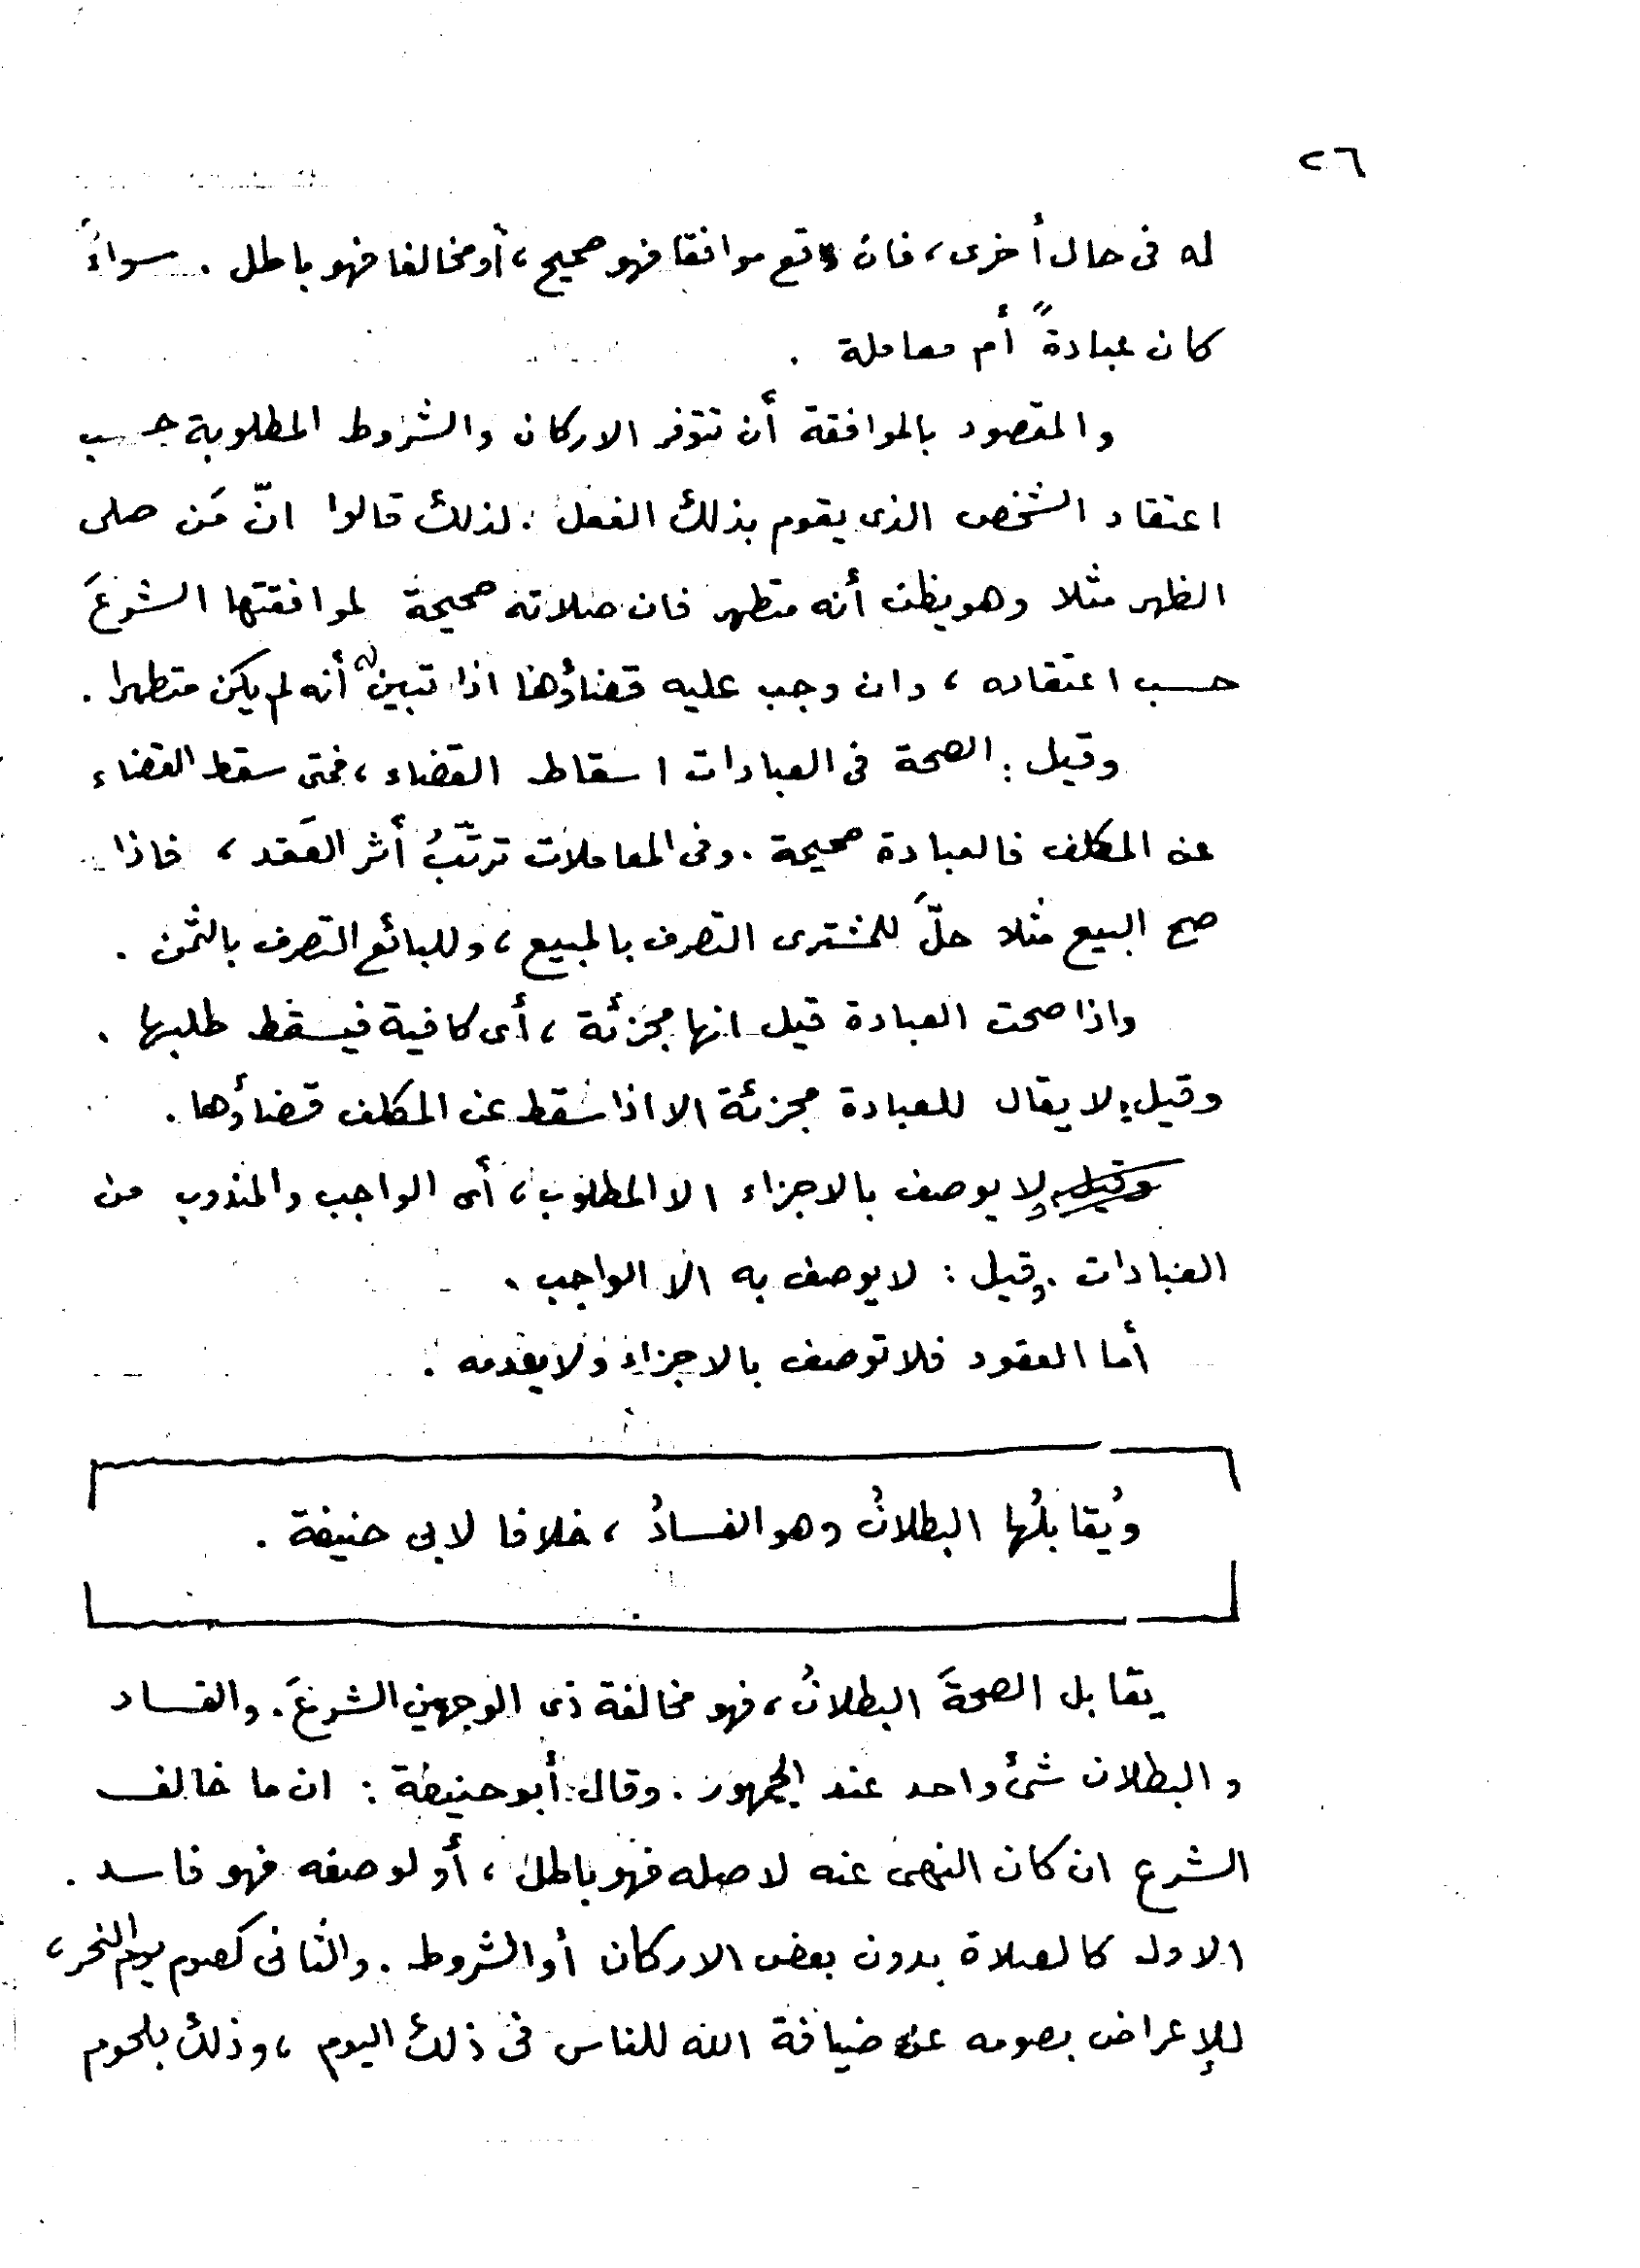 ٢٦
له فى حال أخرى، فان وقع موافقا فهو صحيح، أو مخالفا فهو باطل. سواءً
كان عبادةً أم معاملة.
والمقصود بالموافقة أن تتوفر الاركان والشروط المطلوبة حسب
اعتقاد الشخص الذى يقوم بذلك الفعل. لذلك قالوا انّ مَن صلى
الظهر مثلا وهو يظن أنه متطهر فان صلاته صحيحة لموافقتها الشرعَ
حسب اعتقاده، وان وجب عليه قضاؤها اذا تبين له أنه لم يكن متطهرا.
وقيل: الصحة فى العبادات اسقاط القضاء، فمتى سقط القضاء
عن المكلف فالعبادة صحيحة. وفى المعاملات ترتّبُ أثر العَقد، فاذا
صح البيع مثلا حلّ للمشترى التصرف بالمبيع، وللبائع التصرف بالثمن.
واذا صحت العبادة قيل انها مجزئة، أى كافية فيسقط طلبها.
وقيل: لا يقال للعبادة مجزئة الا اذا سقط عن المكلف قضاؤها.
ولا يوصف بالاجزاء الا المطلوب، أى الواجب والمندوب من
العبادات. وقيل: لا يوصف به الا الواجب.
أما العقود فلا توصف بالاجزاء ولا بعدمه.
ويُقابلُها البطلانُ وهو الفسادُ، خلافا لابى حنيفة.
يقابل الصحةَ البطلانُ، فهو مخالفة ذى الوجهين الشرعَ. والفساد
والبطلان شئ واحد عند الجمهور. وقال أبو حنيفة: ان ما خالف
الشرع ان كان النهى عنه لاصله فهو باطل، أو لوصفه فهو فاسد.
الاول كالصلاة بدون بعض الاركان أو الشروط. والثانى كصوم يوم النحر،
للإعراض بصومه عن ضيافة الله للناس فى ذلك اليوم، وذلك بلحوم